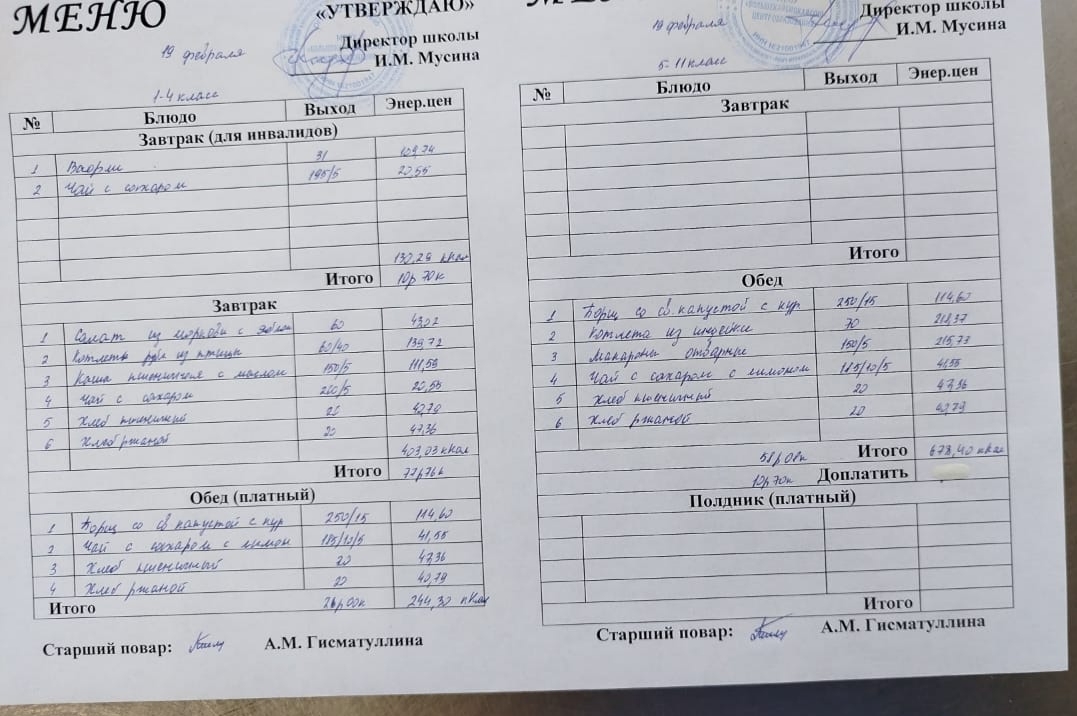 МЕНЮ
«УТВЕРЖДАЮ»
19 февраля
Директор школы
И.М. Мусина
1-4 класс
№ Блюдо Выход Энер.цен
Завтрак (для инвалидов)
1 Вафли 31 109,74
2 Чай с сахаром 195/5 20,55
130,29 ккал
Итого 10р 70к
Завтрак
1 Салат из моркови с яблок 60 43,02
2 Котлеты из птицы 60/40 139,72
3 Каша пшеничная с маслом 150/5 111,59
4 Чай с сахаром 200/5 20,55
5 Хлеб пшеничный 20 40,79
6 Хлеб ржаной 20 47,36
403,03 ккал
Итого 77р76к
Обед (платный)
1 Борщ со св капустой с кур 250/15 114,60
2 Чай с сахаром с лимон 185/10/5 41,55
3 Хлеб пшеничный 20 47,36
4 Хлеб ржаной 20 40,79
Итого 26р00к 244,30 ккал
Старший повар: А.М. Гисматуллина
19 февраля
Директор школы
И.М. Мусина
5-11 класс
№ Блюдо Выход Энер.цен
Завтрак
Итого
Обед
1 Борщ со св.капустой с кур 250/15 114,60
2 Котлета из индейки 70 218,37
3 Макароны отварные 150/5 215,73
4 Чай с сахаром с лимоном 185/10/5 41,55
5 Хлеб пшеничный 20 47,36
6 Хлеб ржаной 20 40,79
58р08к Итого 678,40 ккал
10р70к Доплатить
Полдник (платный)
Итого
Старший повар: А.М. Гисматуллина